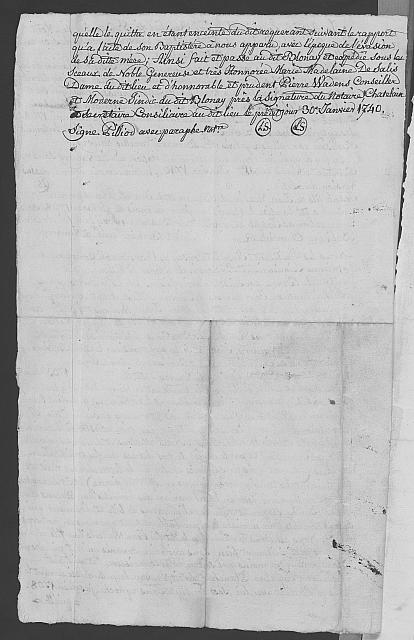 quelle le quittre en étant enceinte du dit requerant suivant le rapport
qu'a l'acte de son Baptistère a nous apparu, avec l'epoque de l'évasion
de sa dite mère; Ainsi fait et passé au dit Rolonay et expedié sous les
Sceaux de Noble Genereuse et très Honnorée Marie Madelaine De Salis
Dame du dit lieu et d'honnorable et prudent Pierre Wadens Conseiller
et Moderne Sindic du dit Rolonay près la Signature du Notaire Chatelain
et Secretaire Consiliaire au dit lieu le prédit jour 30e Janvier 1740.
Signé Pilliod avec paraphe Not.re LS LS